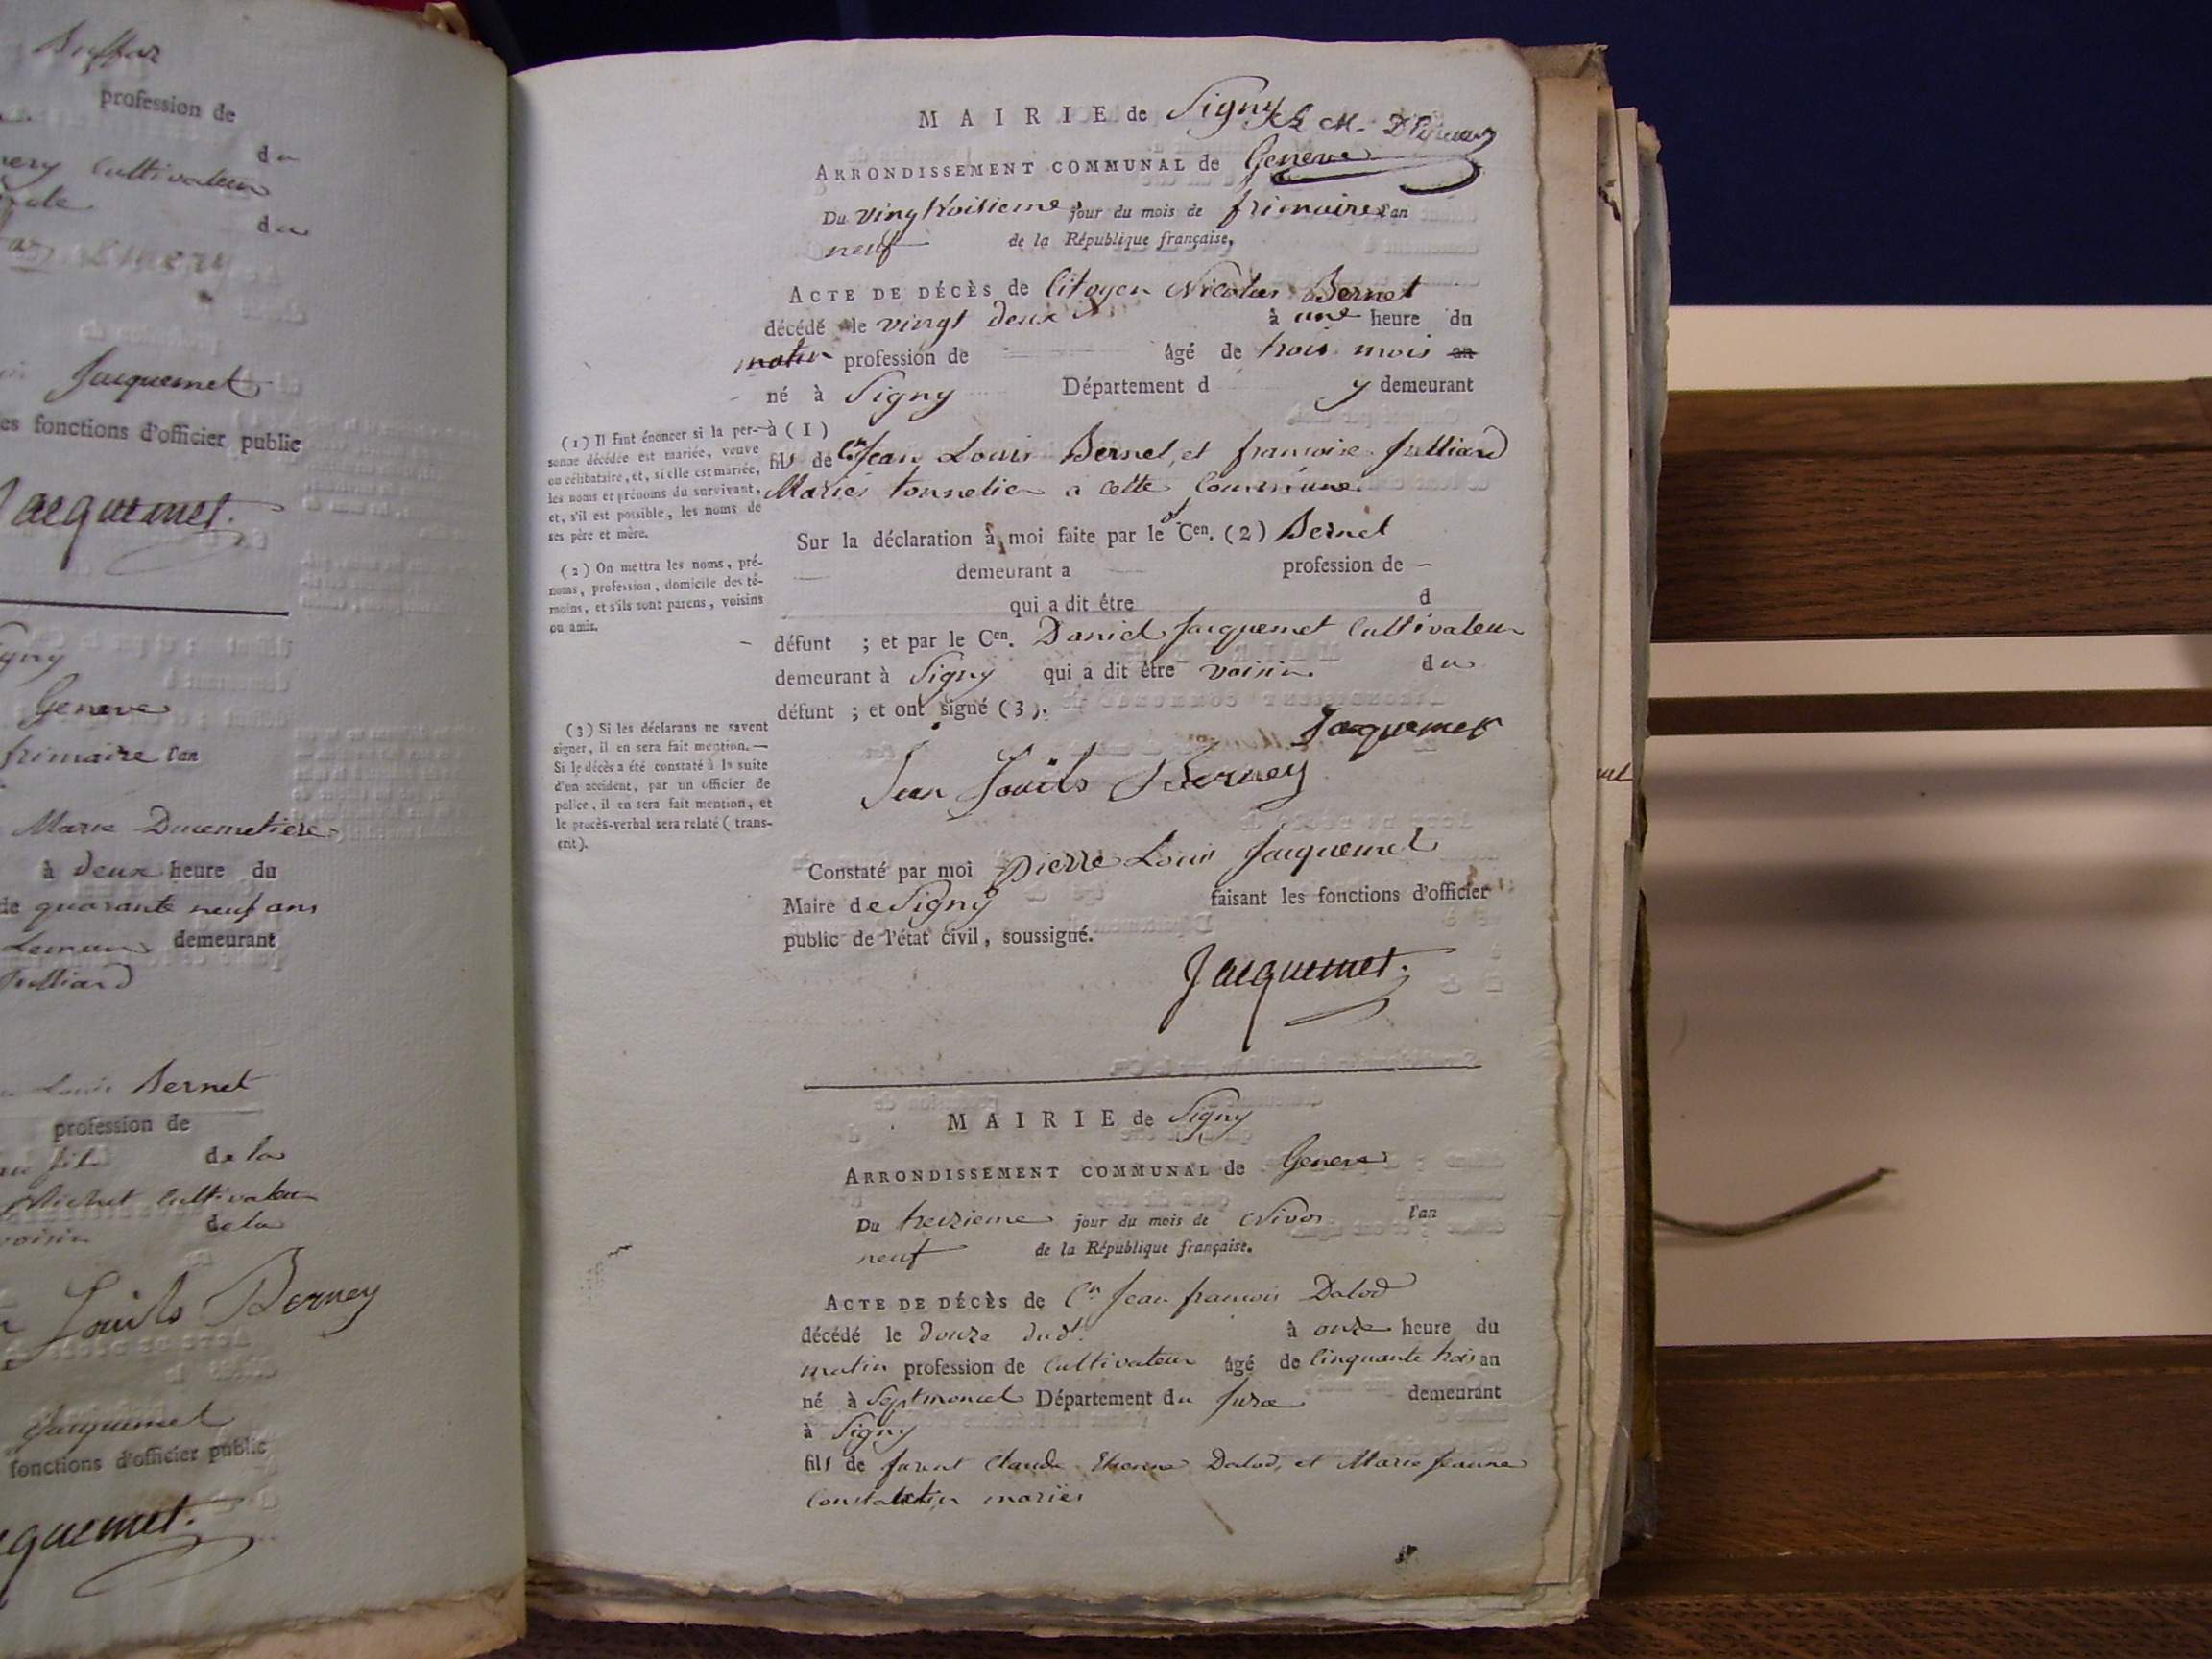 Buffar
profession de
du
Cultivateur
du
Jacquemet
es fonctions d'officier public
Jacquemet.
gny
Geneve
frimaire l'an
Marie Ducemetiere
à deux heure du
de quarante neuf ans
Leman demeurant
Julliard
Louis Bernet
profession de
fils de la
Michet Cultivateur
voisin de la
Louis Berney
Jacquemet
fonctions d'officier public
cquemet.
MAIRIE de Signy
ARRONDISSEMENT COMMUNAL de Geneve
Du vingt troisieme jour du mois de frimaire l'an
neuf de la République française.
ACTE DE DÉCÈS de Citoyen Nicolas Bernet
décédé le vingt deux à une heure du
matin profession de âgé de trois mois an
né à Signy Département d y demeurant
à (1)
fils de Cn Jean Louis Bernet, et francoise Julliard
Mariés tonnelier a cette Commune
Sur la déclaration à moi faite par le dt Cen. (2) Bernet
demeurant a profession de —
qui a dit être d
défunt ; et par le Cen. Daniel Jacquemet Cultivateur
demeurant à Signy qui a dit être voisin du
défunt ; et ont signé (3).
Jacquemet
Jean Louis Berney
Constaté par moi Pierre Louis Jacquemet
Maire de Signy faisant les fonctions d'officier
public de l'état civil, soussigné.
Jacquemet.
(1) Il faut énoncer si la per-
sonne décédée est mariée, veuve
ou célibataire, et, si elle est mariée,
les noms et prénoms du survivant,
et, s'il est possible, les noms de
ses père et mère.
(2) On mettra les noms, pré-
noms, profession, domicile des té-
moins, et s'ils sont parens, voisins
ou amis.
(3) Si les déclarans ne savent
signer, il en sera fait mention. —
Si le décès a été constaté à la suite
d'un accident, par un officier de
police, il en sera fait mention, et
le procès-verbal sera relaté (trans-
crit).
MAIRIE de Signy
ARRONDISSEMENT COMMUNAL de Geneve
Du treizieme jour du mois de Nivos l'an
neuf de la République française.
ACTE DE DÉCÈS de Cn Jean francois Dalod
décédé le douze dudt. à onze heure du
matin profession de Cultivateur âgé de Cinquante trois an
né à Septmoncel Département du Jura demeurant
à Signy
fils de furent Claude Etienne Dalod, et Marie Jeanne
Constantin mariés